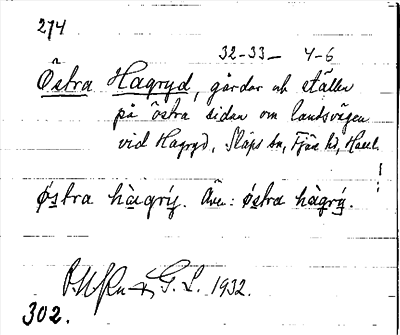 274
32-33- 4-6
Östra Hagryd, gårdar och ställen
på östra sidan om landsvägen
vid Hagryd, Släps sn, Fjäre hd, Hall.
östra hàgrý. Även: östra hàgrý.
G. L. 1932.
302.